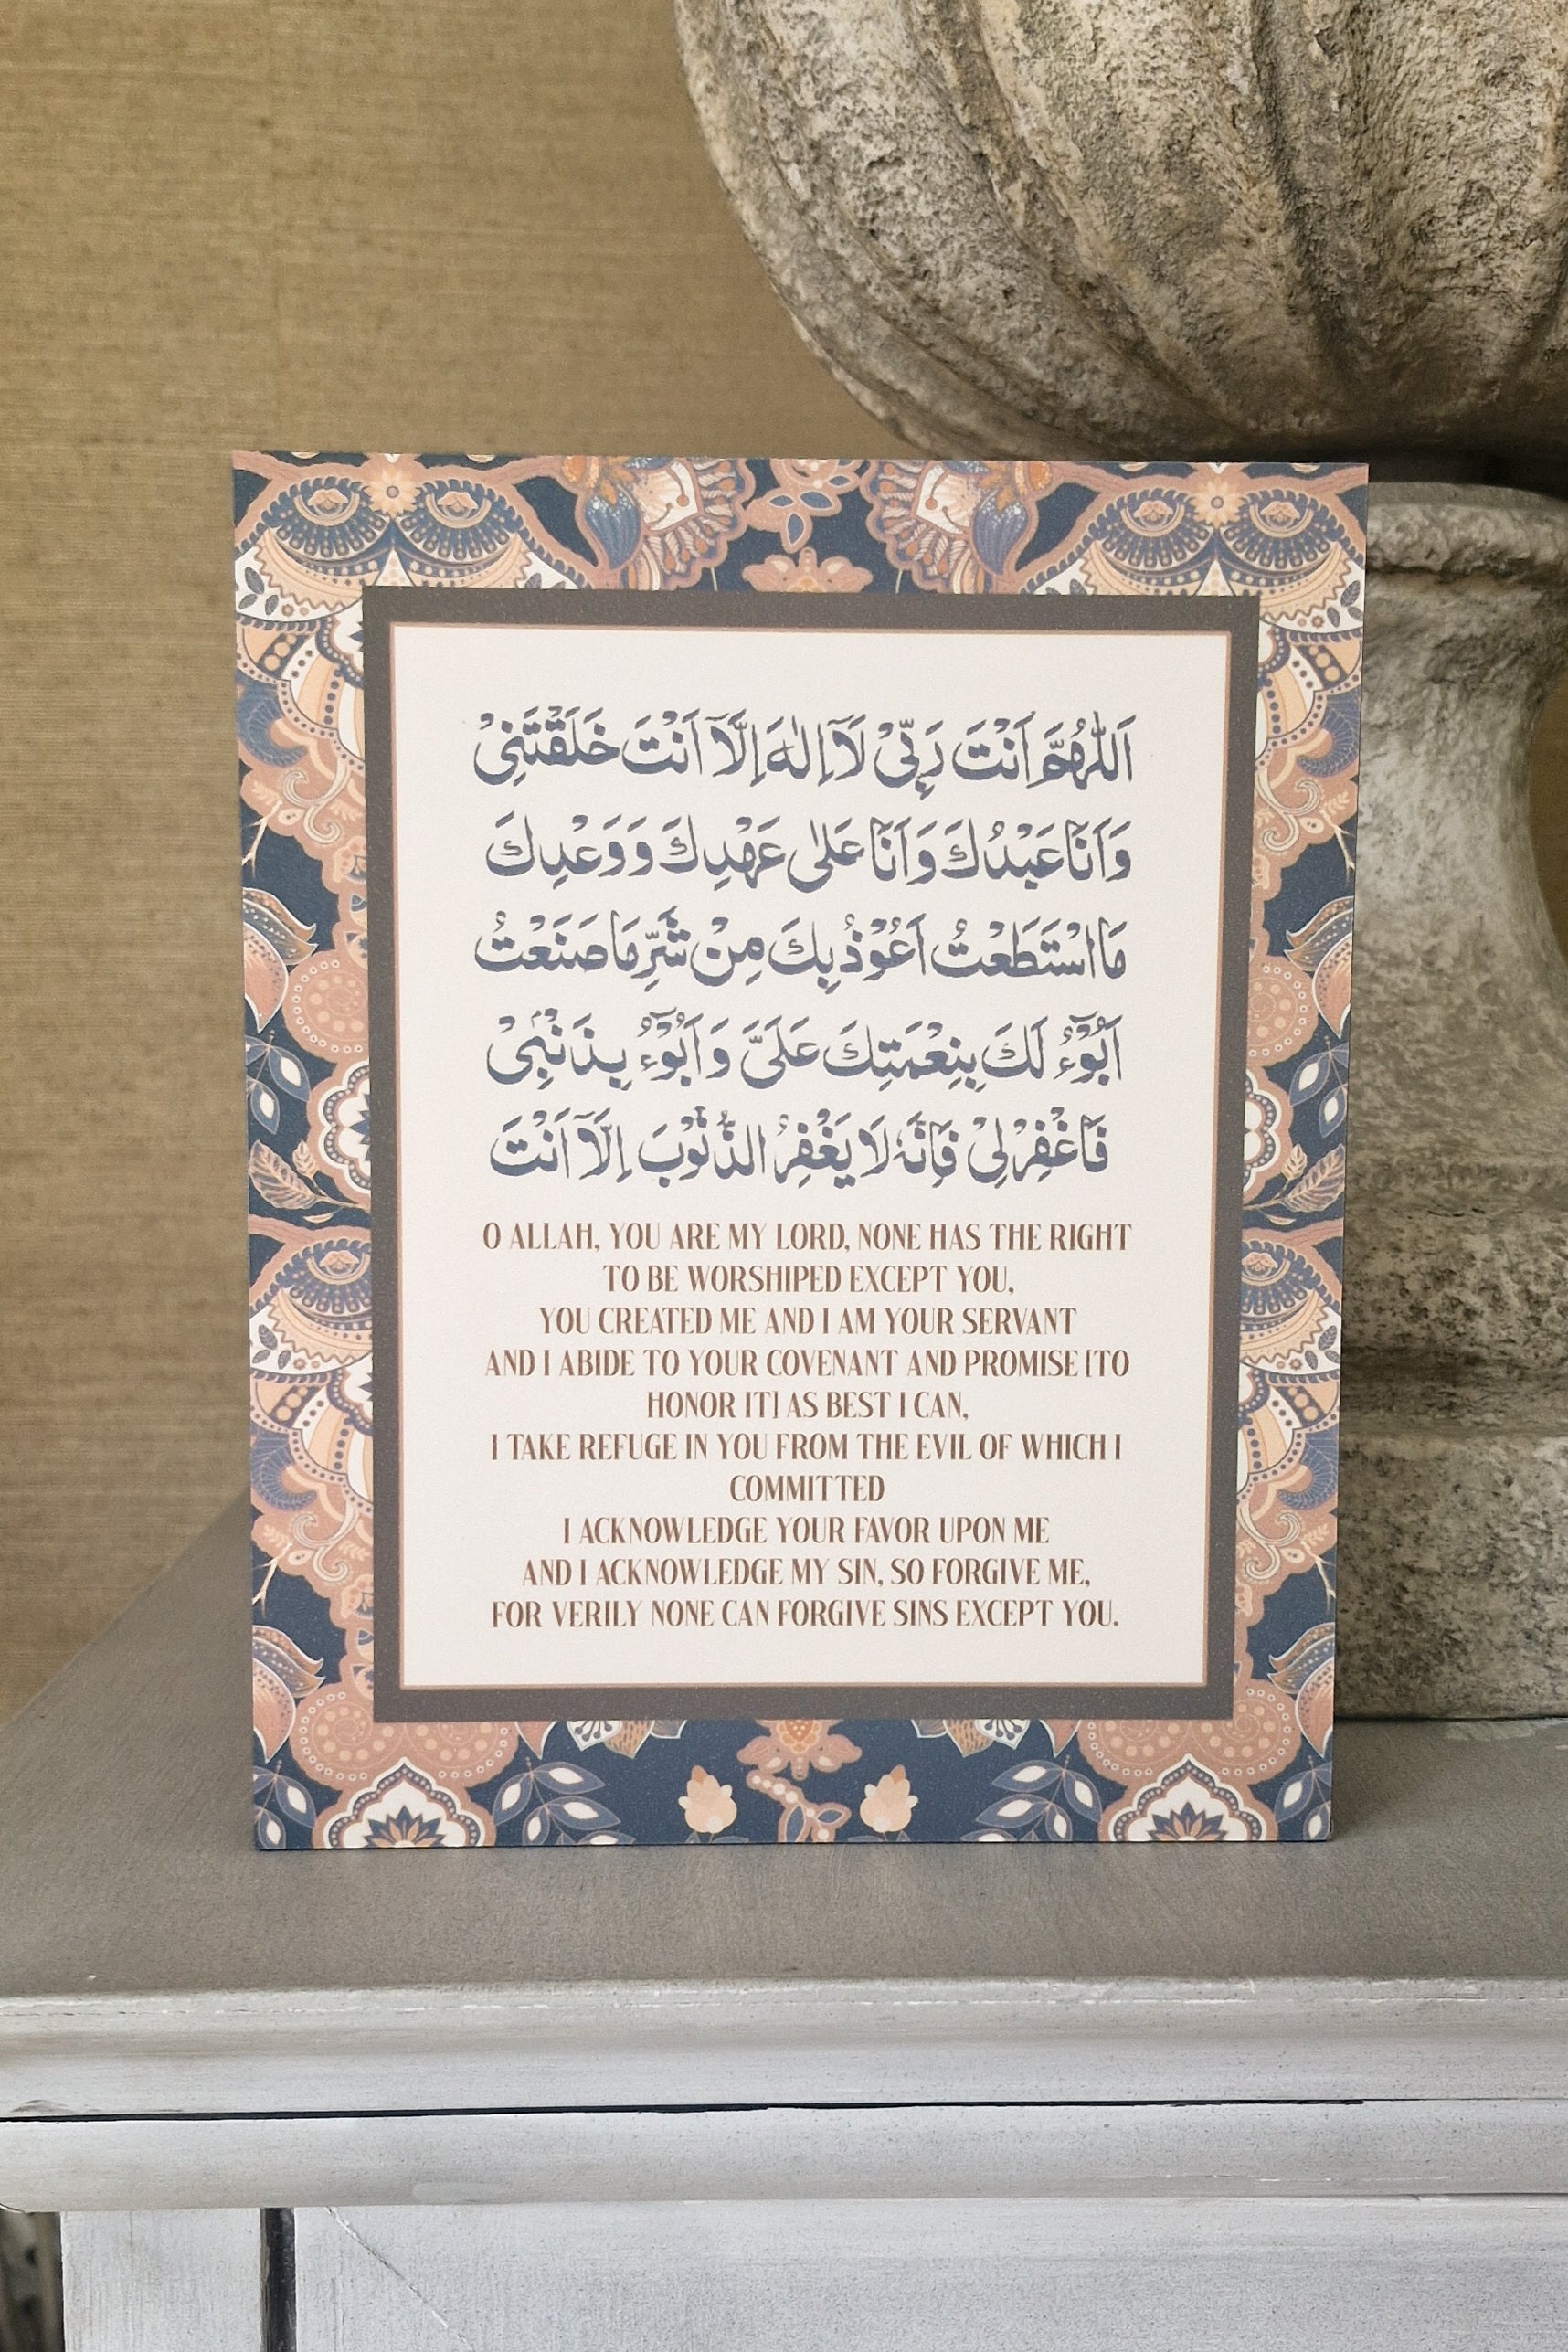 اَللّٰهُمَّ اَنْتَ رَبِّىْ لَآ اِلٰهَ اِلَّا اَنْتَ خَلَقْتَنِىْ
وَاَنَا عَبْدُكَ وَاَنَا عَلٰى عَهْدِكَ وَوَعْدِكَ
مَا اسْتَطَعْتُ اَعُوْذُ بِكَ مِنْ شَرِّ مَا صَنَعْتُ
اَبُوْٓءُ لَكَ بِنِعْمَتِكَ عَلَىَّ وَاَبُوْٓءُ بِذَنْۢبِىْ
فَاغْفِرْلِىْ فَاِنَّهٗ لَا يَغْفِرُ الذُّنُوْبَ اِلَّآ اَنْتَ
O ALLAH, YOU ARE MY LORD, NONE HAS THE RIGHT
TO BE WORSHIPED EXCEPT YOU,
YOU CREATED ME AND I AM YOUR SERVANT
AND I ABIDE TO YOUR COVENANT AND PROMISE [TO
HONOR IT] AS BEST I CAN,
I TAKE REFUGE IN YOU FROM THE EVIL OF WHICH I
COMMITTED
I ACKNOWLEDGE YOUR FAVOR UPON ME
AND I ACKNOWLEDGE MY SIN, SO FORGIVE ME,
FOR VERILY NONE CAN FORGIVE SINS EXCEPT YOU.